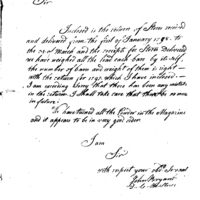 Sir
Inclosed is the return of Stores received
and delivered from the first of January 1792. to
the 31st of March and the receipts for Stores Delivered
we have weighed all the lead each bare by its self
the number of bares and weight of them is right —
with the return for 1791 which I have inclosed —
I am verry Sorry that there has been any mistake
in the return. I shall take care that there is no more
in future.
I have turned all the Powder in the Magazine
and it appears to be in very good order
I am
Sir
With respect your Obt. Servant
John Bryant